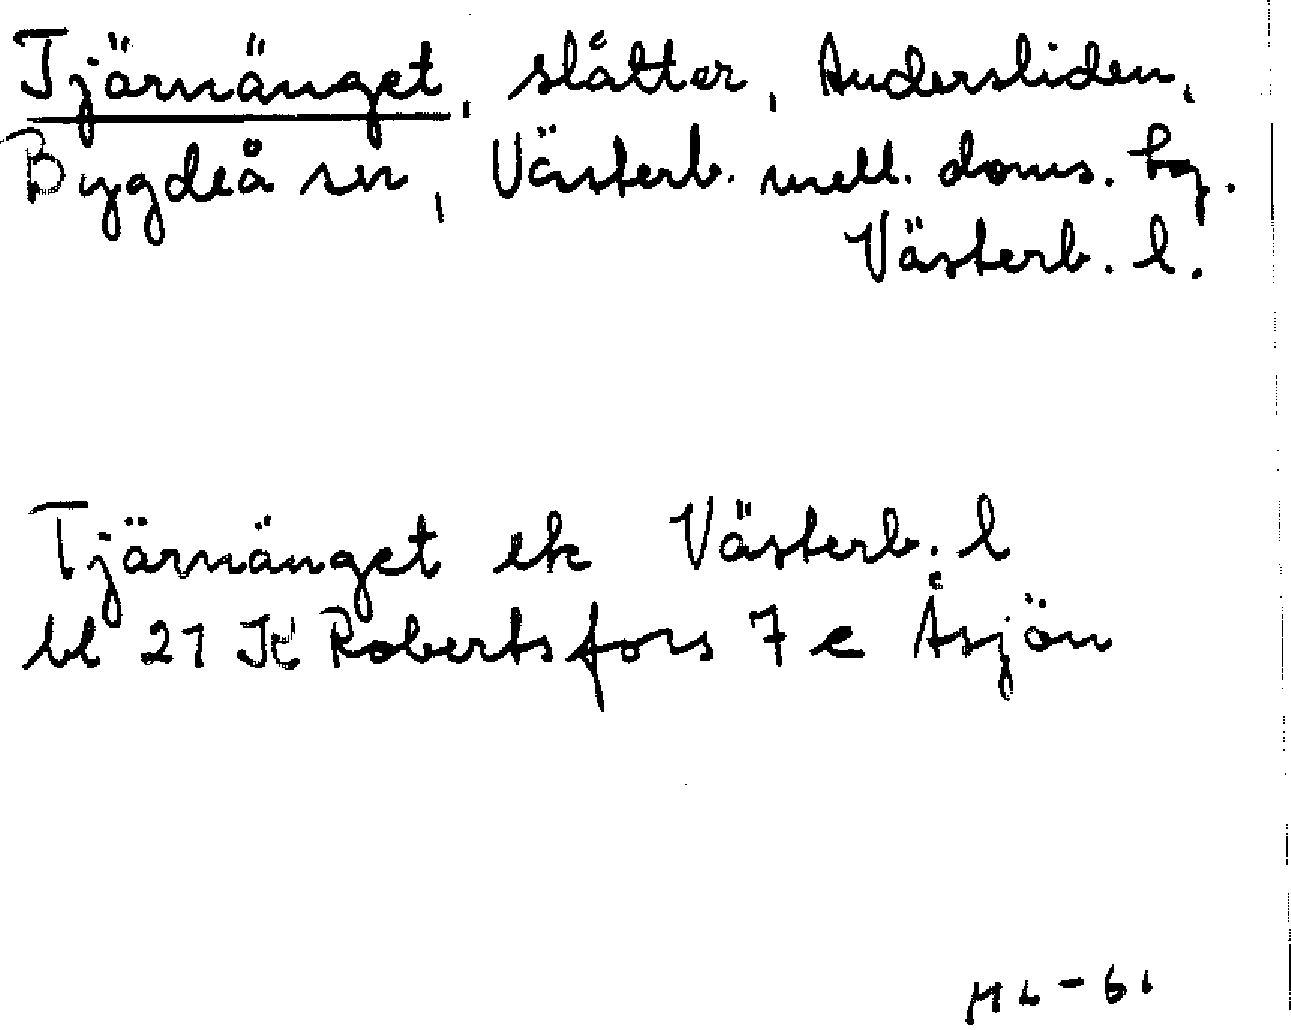 Tjärnänget, slåtter, Andersliden,
Bygdeå sn, Västerb. mell. doms. tg.
Västerb. l.
Tjärnänget ek Västerb. l
bl 21 K Robertsfors 7 e Åsjön